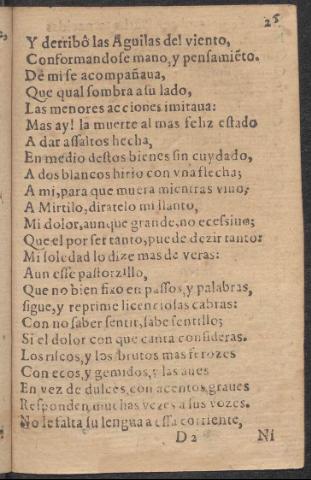 25
Y derribô las Aguilas del viento,
Conformandose mano, y pensamiẽto.
De mi se acompañaua,
Que qual sombra a su lado,
Las menores acciones imitaua:
Mas ay! la muerte al mas feliz estado
A dar assaltos hecha,
En medio destos bienes sin cuydado,
A dos blancos hirio con vna flecha;
A mi, para que muera mientras viuo,
A Mirtilo, diratelo mi llanto,
Mi dolor, aunque grande, no ecessiuo;
Que el por ser tanto, puede dezir tanto:
Mi soledad lo dize mas de veras:
Aun esse pastorzillo,
Que no bien fixo en passos, y palabras,
sigue, y reprime licenciosas cabras:
Con no saber sentir, sabe sentillo;
Si el dolor con que canta consideras.
Los riscos, y los brutos mas ferozes
Con ecos, y gemidos, y las aues
En vez de dulces, con acentos graues
Responden, muchas vezes a sus vozes.
No le falta su lengua a essa corriente,
D 2 Ni